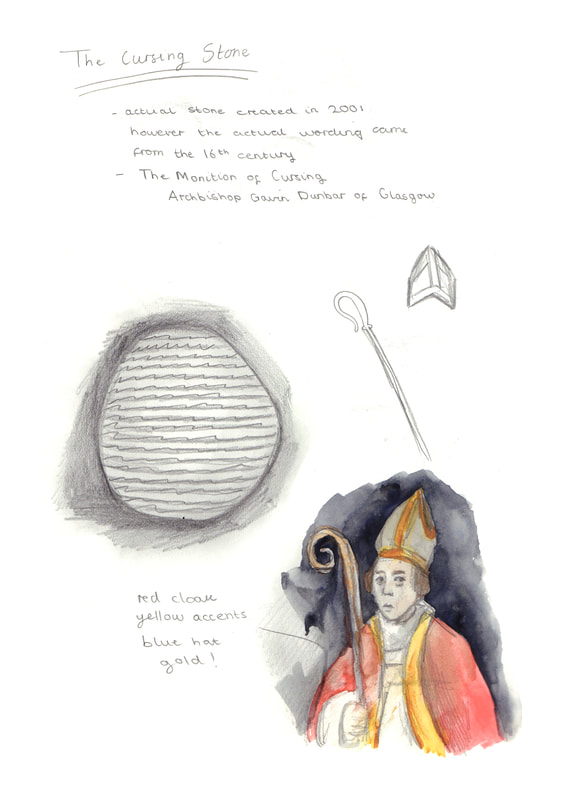 The Cursing Stone
- actual stone created in 2001
however the actual wording came
from the 16th century
- The Monition of Cursing
Archbishop Gavin Dunbar of Glasgow
red cloak
yellow accents
blue hat
gold!